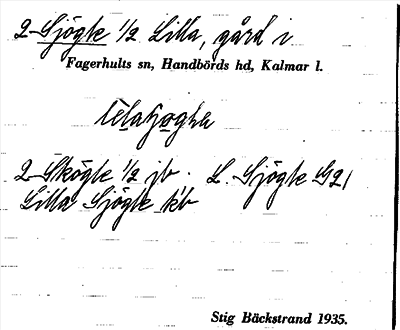 2-Sjögle 1/2 Lilla, gård i
Fagerhults sn, Handbörds hd, Kalmar l.
2-Skögle 1/2 jb. L. Sjögle G21
Lilla Sjögle kb
Stig Bäckstrand 1935.